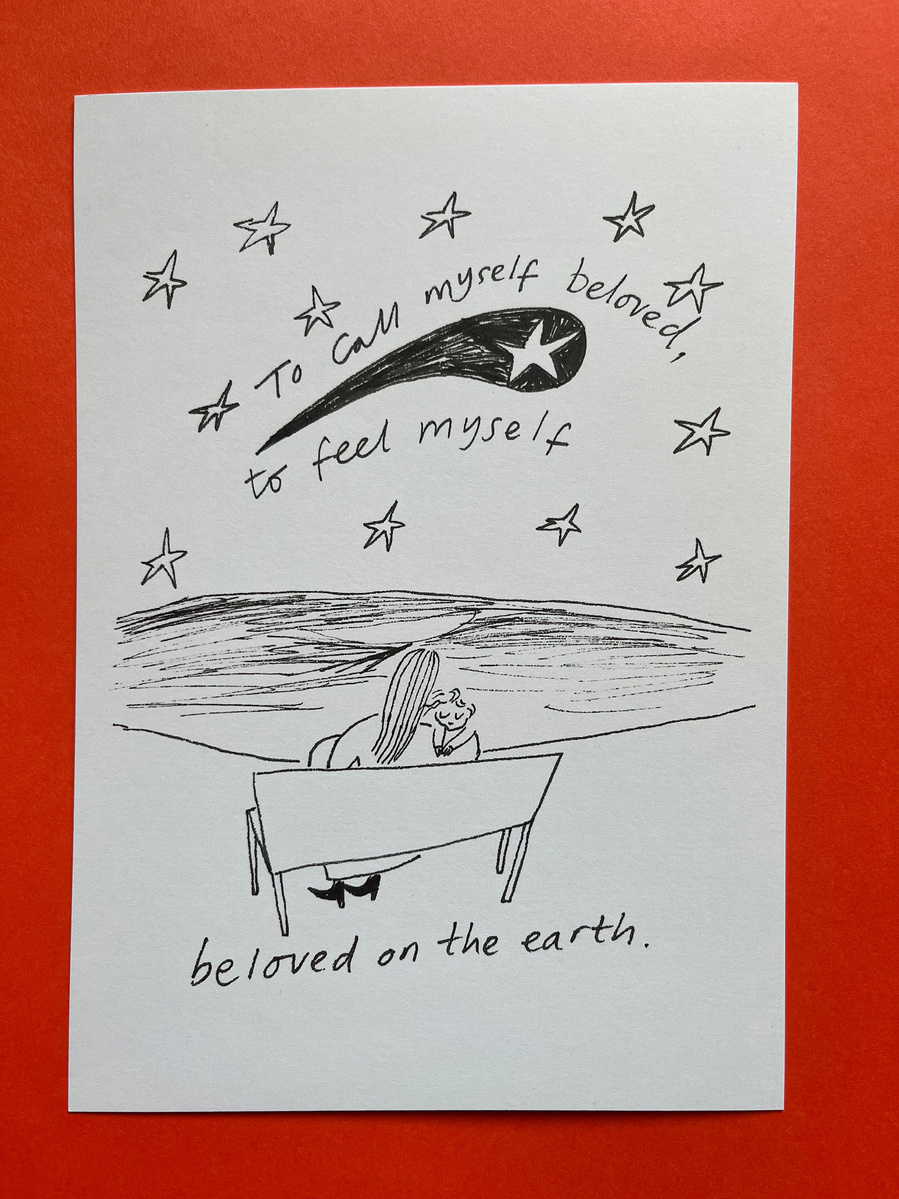 To Call myself beloved,
to feel myself
beloved on the earth.